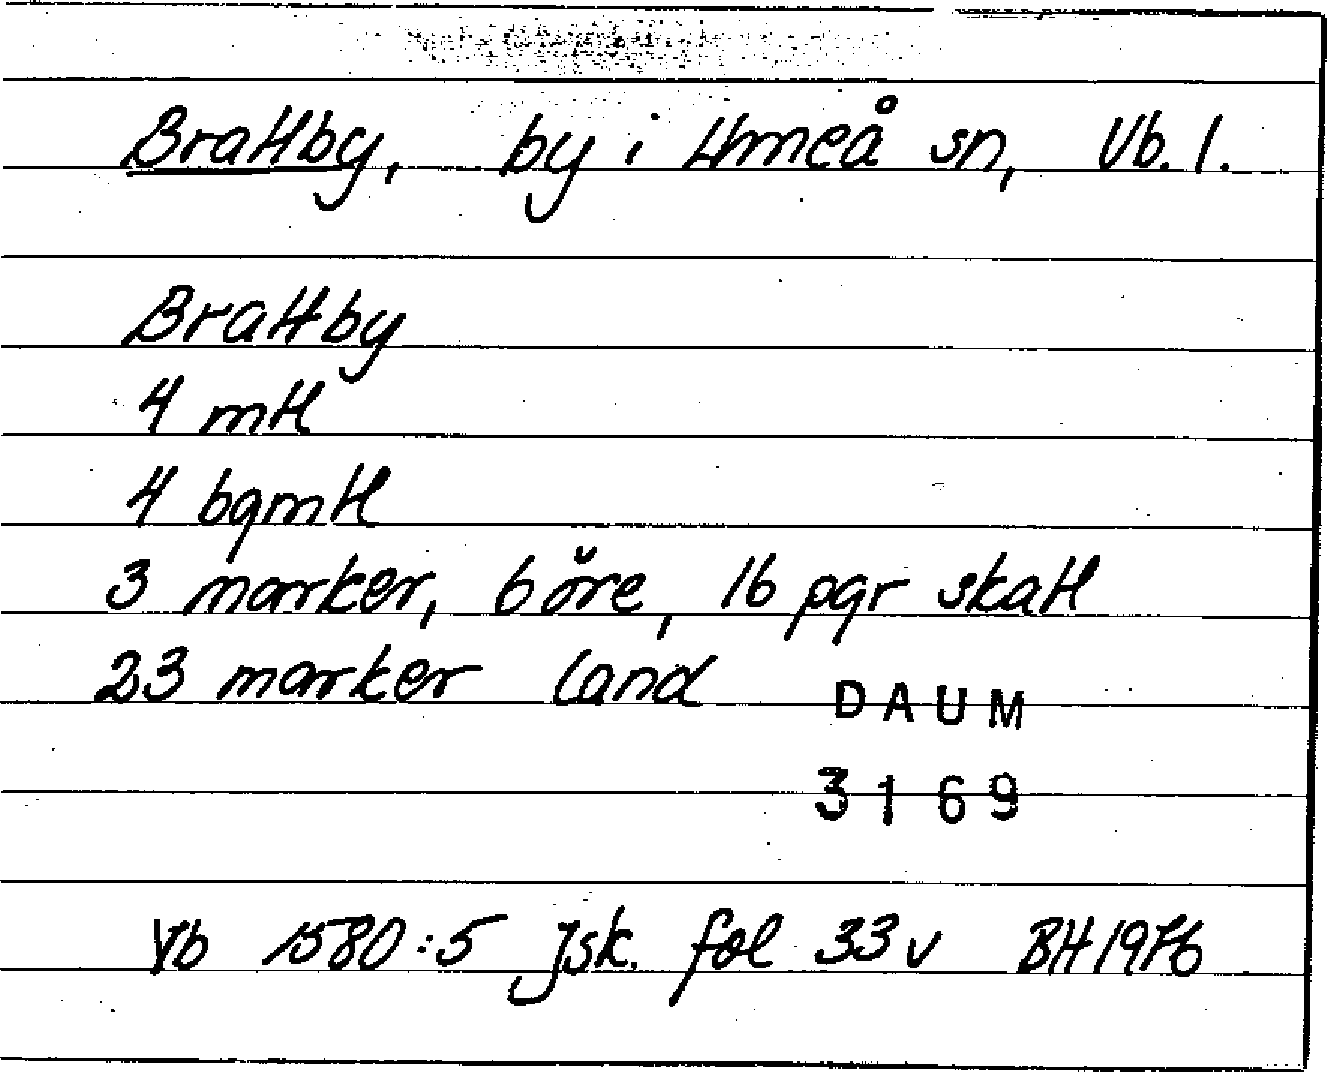 Brattby, by i Umeå sn, Vb. l.
Brattby
4 mtl
4 bgmtl
3 marker, 6 öre, 16 pgr skatt
23 marker land
DAUM
3169
Vb 1580:5 Jsk. fol 33 v BH 1976